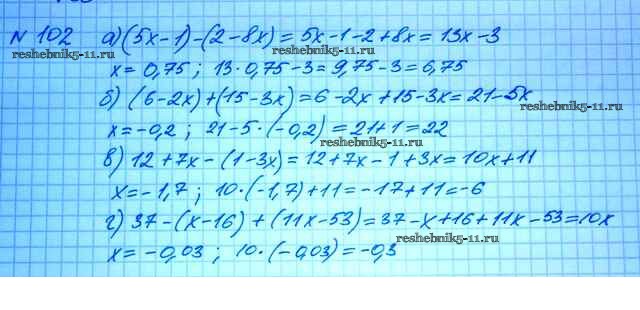 № 102 а) (5x-1)-(2-8x)=5x-1-2+8x=13x-3
reshebnik5-11.ru
x=0,75; 13·0,75-3=9,75-3=6,75
reshebnik5-11.ru
б) (6-2x)+(15-3x)=6-2x+15-3x=21-5x
reshebnik5-11.ru
x=-0,2; 21-5·(-0,2)=21+1=22
reshebnik5-11.ru
в) 12+7x-(1-3x)=12+7x-1+3x=10x+11
x=-1,7; 10·(-1,7)+11=-17+11=-6
reshebnik5-11.ru
г) 37-(x-16)+(11x-53)=37-x+16+11x-53=10x
reshebnik5-11.ru
x=-0,03; 10·(-0,03)=-0,3
reshebnik5-11.ru